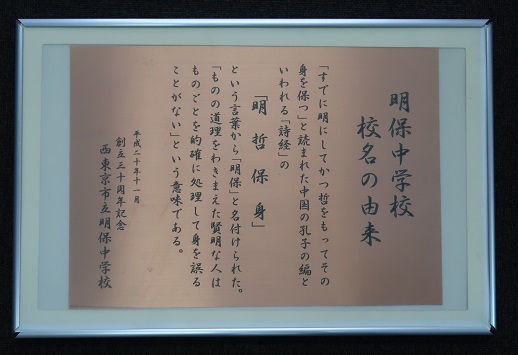 明保中学校
校名の由来
「すでに明にしてかつ哲をもってその
身を保つ」と読まれた中国の孔子の編と
いわれる「詩経」の
「明哲保身」
という言葉から「明保」と名付けられた。
「ものの道理をわきまえた賢明な人は
ものごとを的確に処理して身を誤る
ことがない」という意味である。
平成二十年十一月
創立三十周年記念
西東京市立明保中学校